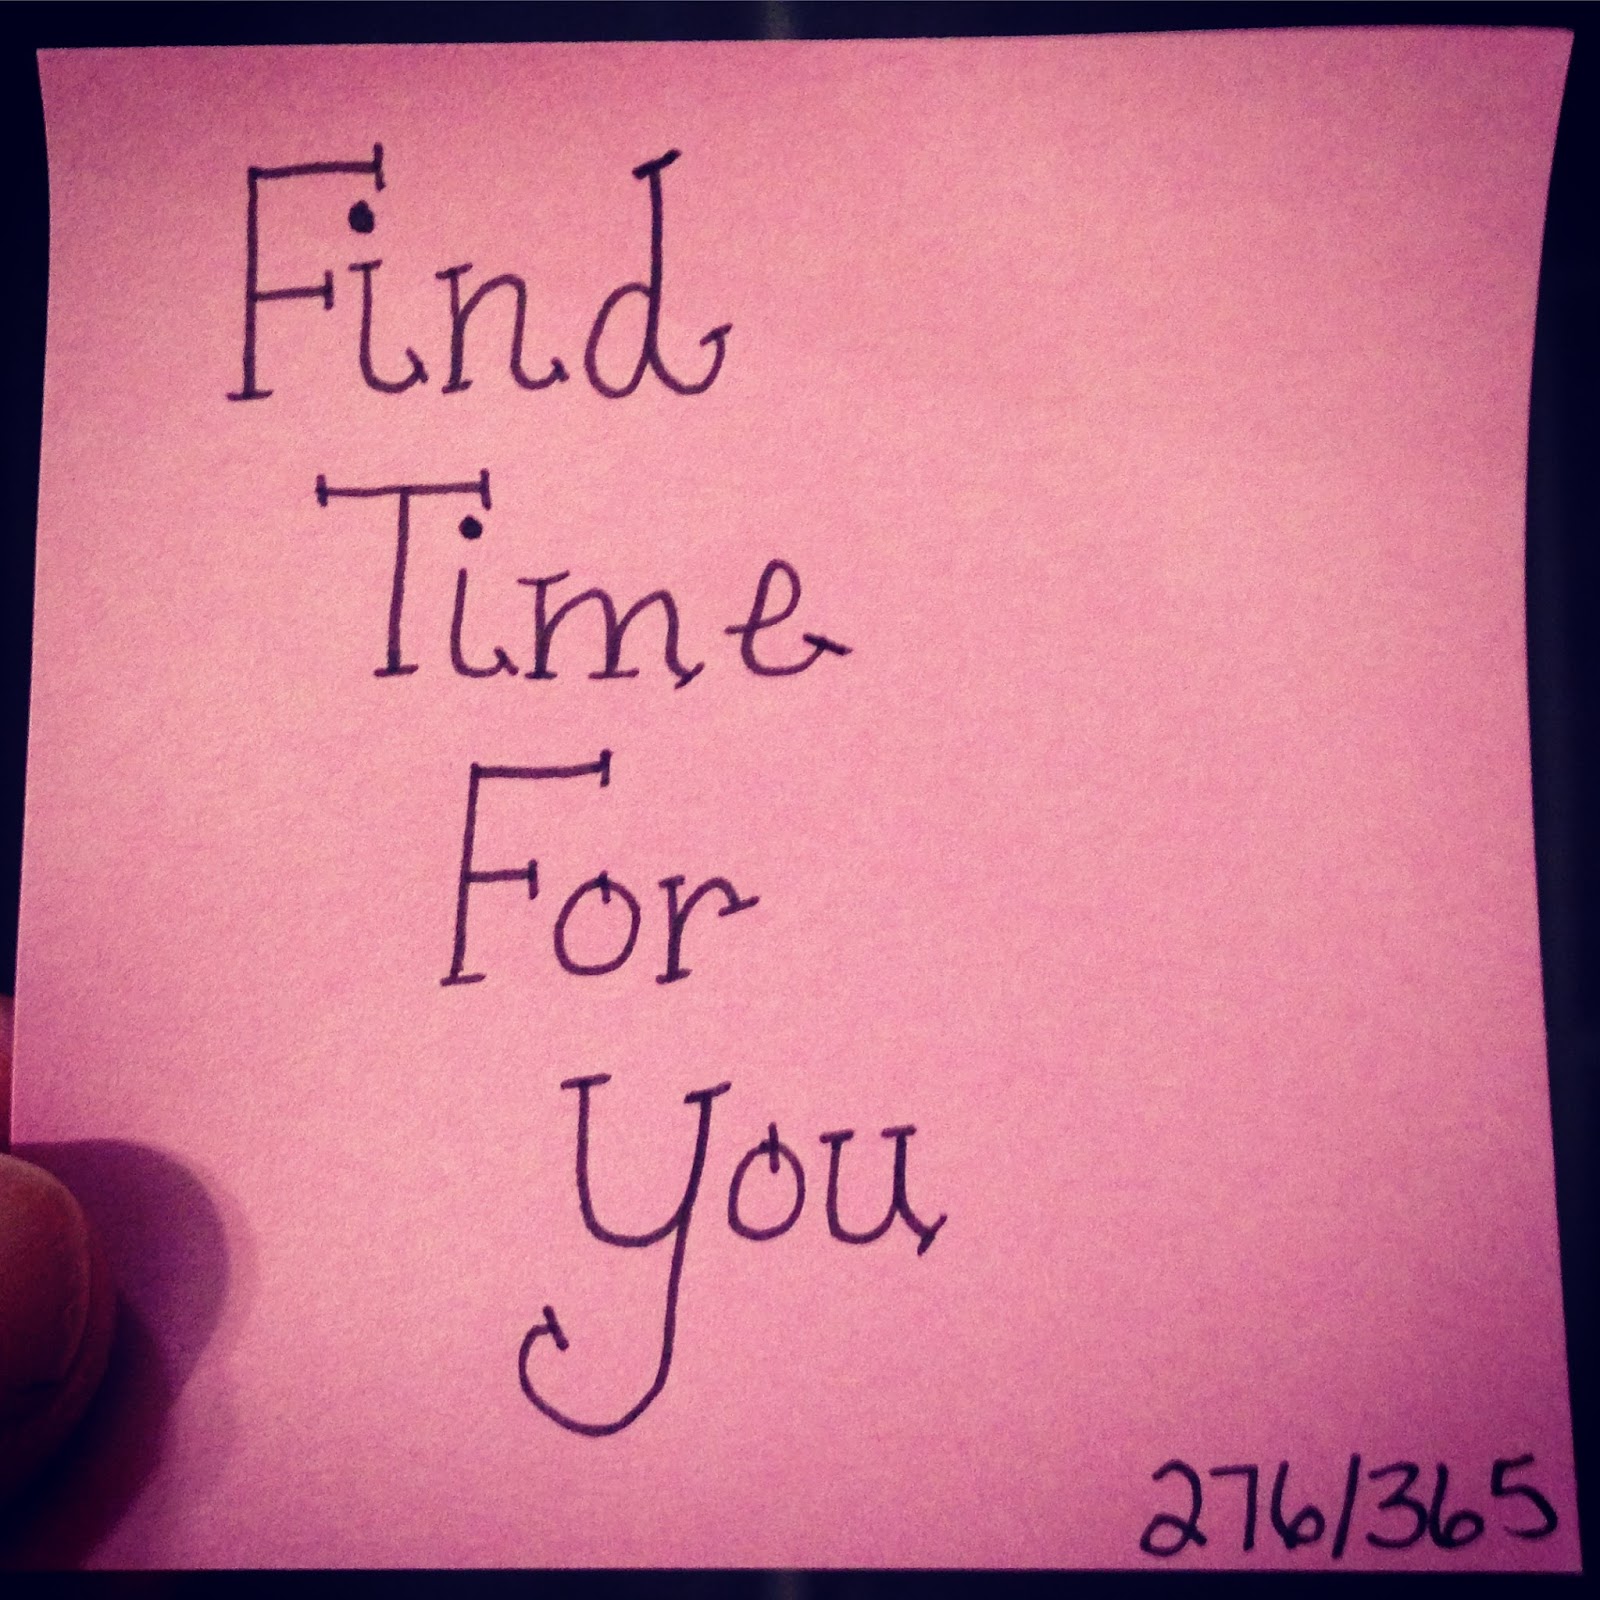 Find
Time
For
You
276/365